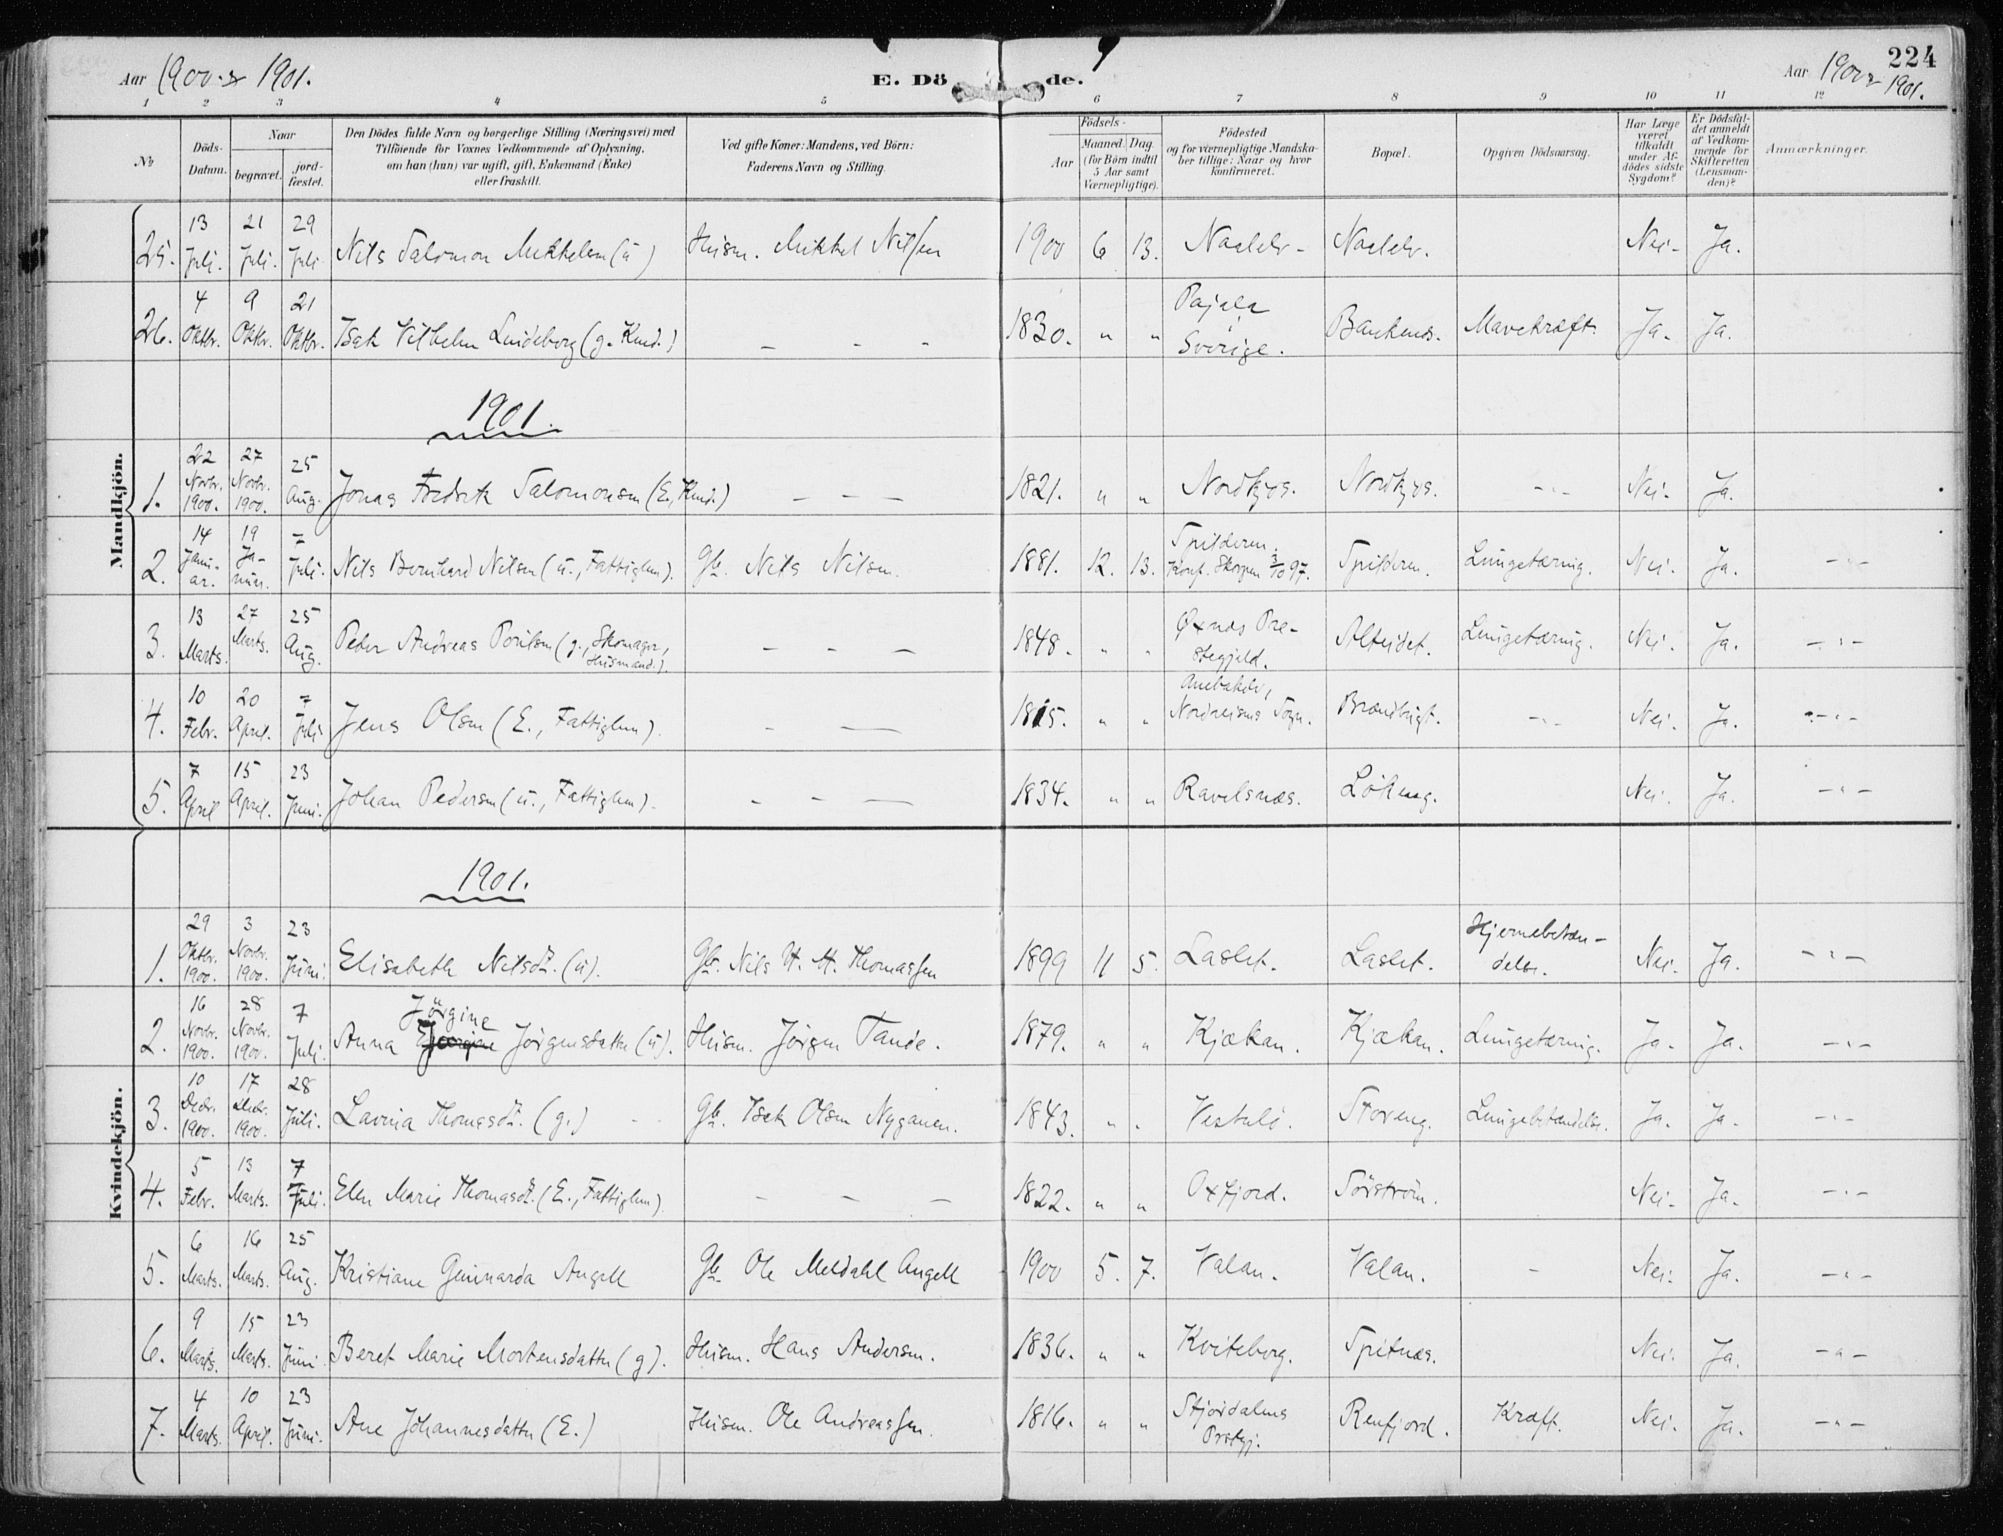 224
Aar 1900 & 1901.
E. Dö de.
Aar 1900 & 1901.
1 2 3 4 5 6 7 8 9 10 11 12
No
Döds-Datum.
Naar
begravet.
jord-fæstet.
Den Dödes fulde Navn og borgerlige Stilling (Næringsvei) med
Tilföiende for Voxnes Vedkommende af Oplysning,
om han (hun) var ugift, gift, Enkemand (Enke)
eller fraskilt.
Ved gifte Koner: Mandens, ved Börn:
Faderens Navn og Stilling.
Födsels-
Aar
Maaned. Dag.
(for Börn indtil
5 Aar samt
Værnepligtige).
Födested
og for værnepligtige Mandska-
ber tillige: Naar og hvor
konfirmeret.
Bopæl.
Opgiven Dödsaarsag.
Har Læge
været
tilkaldt
under Af-
dödes sidste
Sygdom?
Er Dödsfal-
det anmeldt
af Vedkom-
mende for
Skifteretten
(Lensman-
den)?
Anmærkninger.
Mandkjön.
25. 13 Juli. 21 Juli. 29 Juli Nils Salomon Mikkelsen (u) Husm. Mikkel Nilssen 1900 6 13. Naalelv - Naalelv. Nei - Ja.
26. 4 Oktbr. 9 Oktbr. 21 Oktbr. Isak Vilhelm Lindeborg (g. Kmd.) - - - 1830. " " Pajala Sverige. Bankenes. Mavekræft. Ja. Ja.
1901.
1. 22 Novbr. 1900. 27 Novbr. 1900. 25 Aug. Jonas Fredrik Salomonsen (E., Kmd.) - - - 1821. " " Nordkjos. Nordkjos. - " - Nei. Ja.
2. 14 Janu-ar. 19 Ja-nuar. 7 Juli. Nils Bernhard Nilsen (u., Fattiglem). Gb. Nils Nilsen. 1881. 12. 13. Spilderen. Konf. Skorpen 3/10 97. Spilderen. Lungetæring. Nei. Ja. - " -
3. 13 Marts. 27 Marts. 25 Aug. Peder Andreas Poulsen (g., Skomager, Husmand.). - - - 1848. " " Øxnes Præ-stegjeld. Alteidet. Lungetæring. Nei. Ja. - " -
4. 10 Febr. 20 April. 7 Juli Jens Olsen (E., Fattiglem). - - 1815. " " Nordreisens Sogn. - " - Nei. Ja. - " -
5. 7 April 15 April. 23 Juni. Johan Pedersen (u., Fattiglem). - - - 1834. " " Ravelsnæs. Lökvag. Nei. Ja. - " -
Kvindekjön.
1901.
1. 29 Oktbr. 1900. 3 Novbr. 1900. 23 Juni. Elisabeth Nilsdt. (u). Gb. Nils H. H. Thomassen 1899 11 5. Laslet. Laslet. Hjernebetæn-delse. Nei. Ja. - " -
2. 16 Novbr. 1900. 28 Novbr. 1900. 7 Juli. Anna Jörgine Jörgensdatter (u). Husm. Jörgen Tande. 1879. " " Kjækan. Kjækan. Lungetæring. Ja. Ja. - " -
3. 10 Decbr. 1900. 17 Decbr. 1900. 28 Juli. Lavina Thomasdt. (g.) Gb. Isak Olsen Nyganen. 1843. " " Storeng. Lungebetændelse. Ja. Ja. - " -
4. 5 Febr. 13 Marts. 7 Juli. Elen Marie Thomasdt. (E., Fattiglem). - - - 1822. " " Oxfjord. Sörström. Nei. Ja. - " -
5. 6 Marts. 16 Marts. 25 Aug. Kristiane Gunnarda Angell Gb Ole Meldahl Angell 1900 5. 7. Valan. Valan. - Nei. Ja. - " -
6. 9 Marts. 15 Marts. 23 Juni Beret Marie Mortensdatter (g). Husm. Hans Andersen. 1836. " " Kviteborg. Spitnæs. Nei. Ja. - " -
7. 4 Marts. 10 April. 23 Juni. Ane Johannesdatter (E.) Husm. Ole Andreassen. 1816. " " Stjordalens Prstgj. Renfjord. Kræft. Nei. Ja. - " -